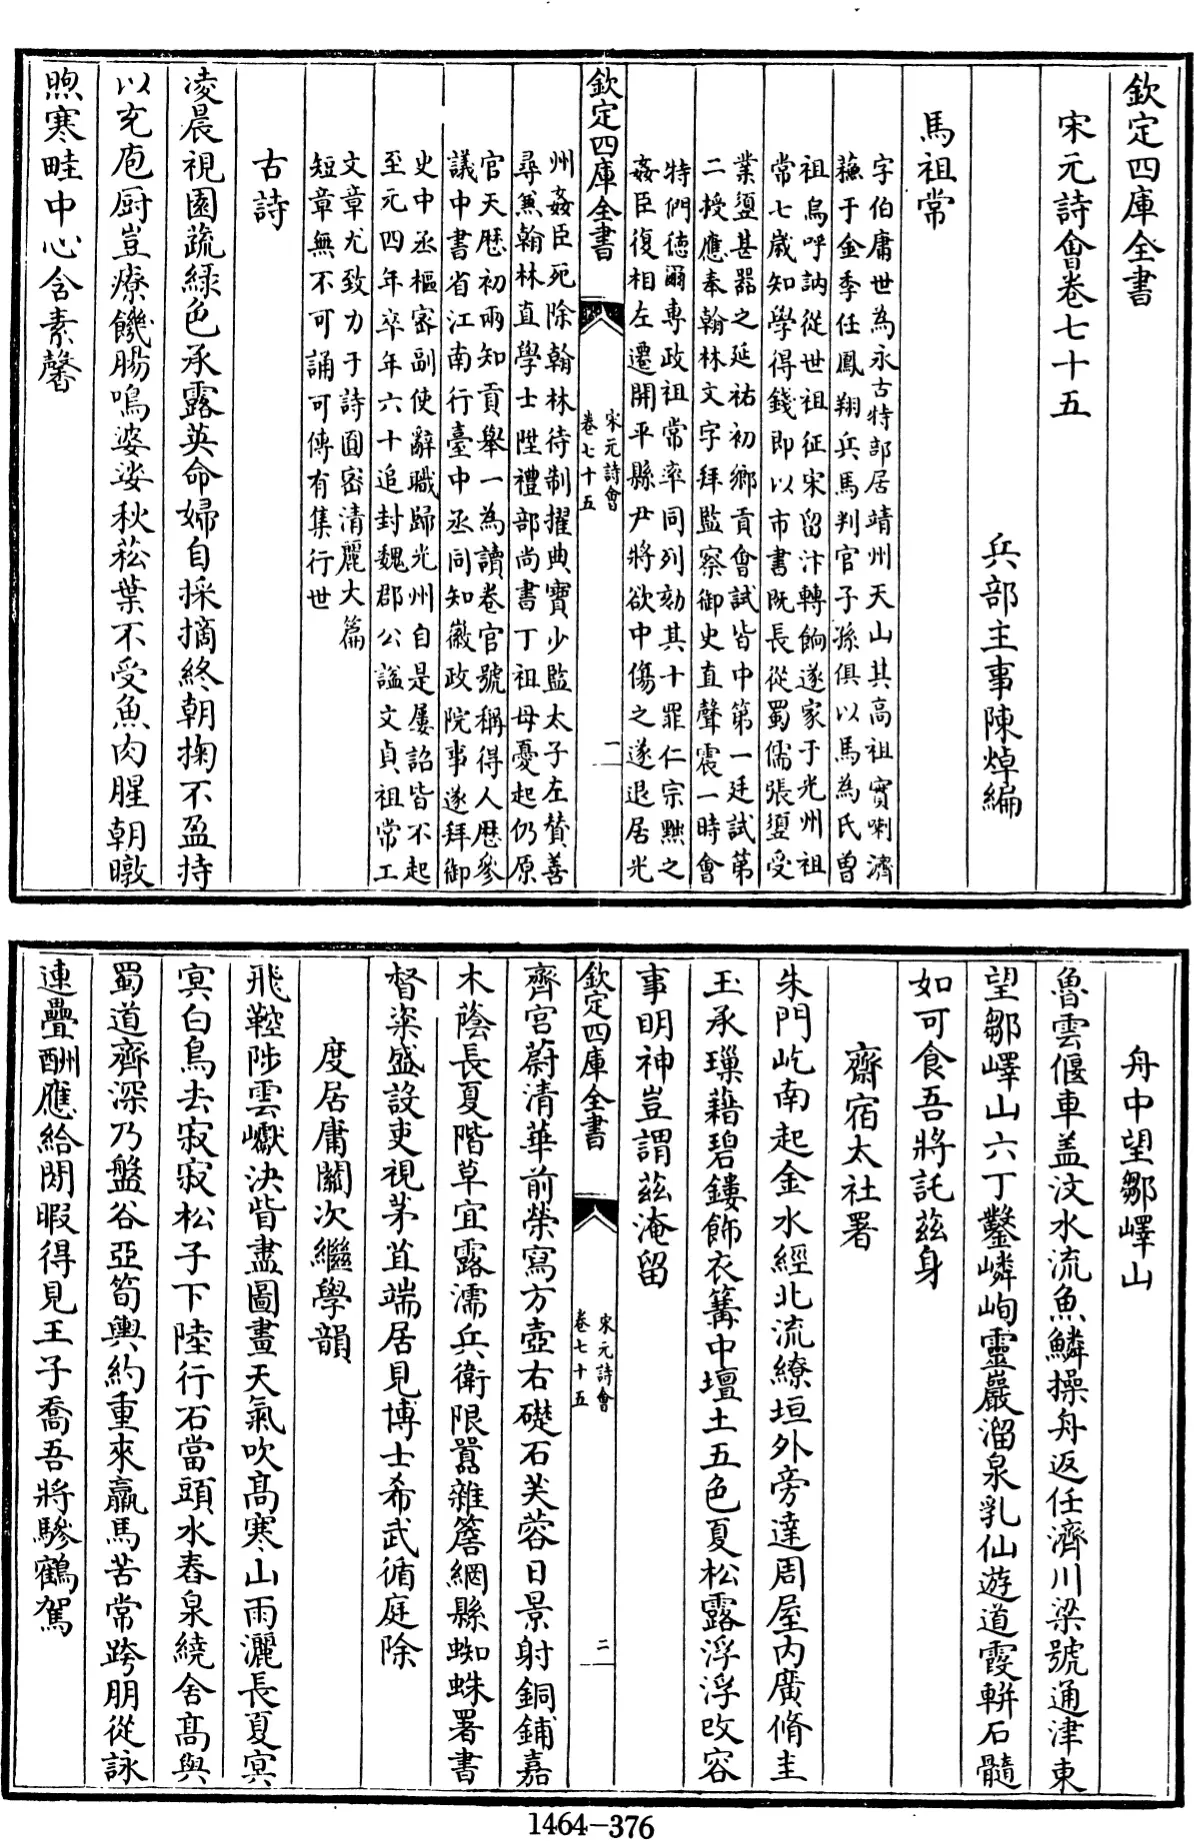 欽定四庫全書
宋元詩會卷七十五
兵部主事陳焯編
馬祖常
字伯庸世為永古特部居靖州天山其高祖實喇濟
蘓于金季任鳳翔兵馬判官子孫俱以馬為氏曽
祖烏呼訥從世祖征宋留汴轉餉遂家于光州祖
常七嵗知學得錢即以市書既長從蜀儒張𡎺受
業𡎺甚器之延祐初鄉貢會試皆中第一廷試第
二授應奉翰林文字拜監察御史直聲震一時會
特們德爾專政祖常率同列劾其十罪仁宗黜之
姦臣復相左遷開平縣尹將欲中傷之遂退居光
欽定四庫全書
宋元詩會
卷七十五
一
州姦臣死除翰林待制擢典寶少監太子左賛善
尋兼翰林直學士陞禮部尚書丁祖母憂起仍原
官天厯初兩知貢舉一為讀卷官號稱得人厯參
議中書省江南行臺中丞同知徽政院事遂拜御
史中丞樞宻副使辭職歸光州自是屢詔皆不起
至元四年卒年六十追封魏郡公諡文貞祖常工
文章尤致力于詩圓密清麗大篇
短章無不可誦可傳有集行世
古詩
凌晨視園蔬綠色承露英命婦自採摘終朝掬不盈持
以充庖厨豈療饑腸鳴婆娑秋菘葉不受魚肉腥朝暾
煦寒畦中心含素馨
舟中望鄒嶧山
魯雲偃車盖汶水流魚鱗操舟返任濟川梁號通津東
望鄒嶧山六丁鑿嶙峋靈巖溜泉乳仙遊道霞軿石髓
如可食吾將託兹身
齋宿太社署
朱門屹南起金水經北流繚垣外旁達周屋内廣脩圭
玉承璅藉碧鏤飾衣篝中壇土五色夏松露浮浮改容
事明神豈謂茲淹留
欽定四庫全書
宋元詩會
卷七十五
二
齊宮蔚清華前榮寫方壺右礎石芙蓉日景射銅鋪嘉
木蔭長夏階草宜露濡兵衛限嚣雜簷網縣蜘蛛署書
督粢盛設吏視茅苴端居見博士希武循庭除
度居庸關次繼學韻
飛鞚陟雲巘決眥盡圖畫天氣吹髙寒山雨灑長夏㝠
㝠白鳥去寂寂松子下陸行石當頭水舂泉繞舍髙與
蜀道齊深乃盤谷亞筍輿約重來羸馬苦常跨朋從詠
連疊酬應給閒暇得見王子喬吾將驂鶴駕
1464—376